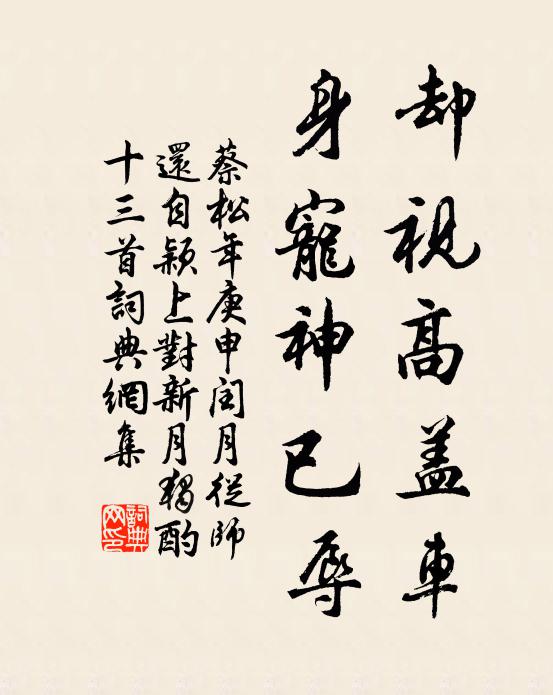 却視高盖車
身寵神已辱
蔡松年庚申閏月從師
還自颍上對新月獨酌
十三首詞典網集
詞典
网印